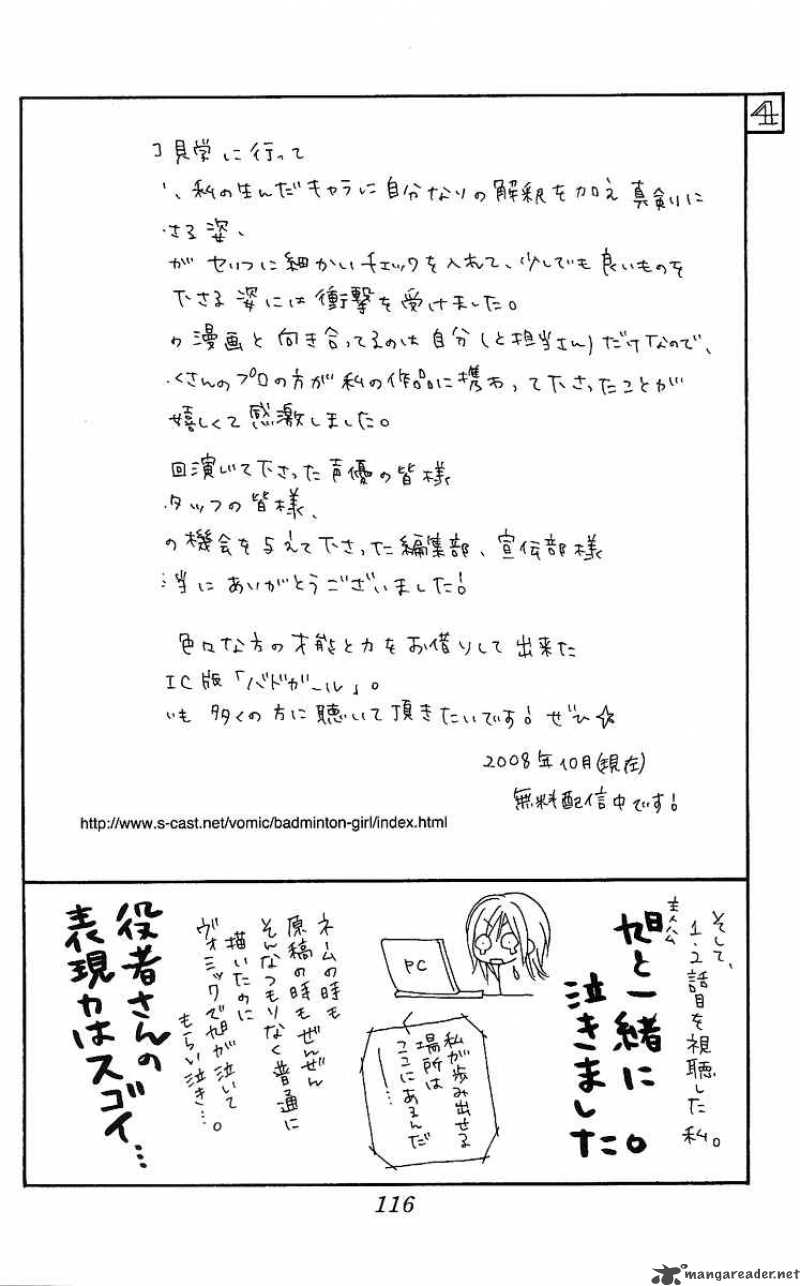 4
見学に行って
、私の生んだキャラに自分なりの解釈を加え 真剣に
さる姿、
がセりつに細かいチェックを入れて、少しでも良いものを
下さる 姿には衝撃を受けました。
の漫画と向き合ってるのは自分(と担当さん)だけなので、
くさんのプロの方が私の作品に携わって下さったことが
嬉しくて感激しました。
回演じて下さった声優の皆様
タッフの皆様、
の機会を与えて下さった編集部、宣伝部様
当にありがとうございました!
色々な方の才能と力をお借りして出来た
IC版「バドガール」。
も 多くの方に聴いて頂きたいです!ぜひ☆
2008年10月(現在)
無料配信中です!
http://www.s-cast.net/vomic/badminton-girl/index.html
そして、
1・2話目を視聴した私。
主人公
旭と一緒に
泣きました。
PC
私が歩み出せる
場所は
ここにあるんだ
ー…
ネームの時も
原稿の時もぜんぜん
そんなつもりなく普通に
描いたのに
ヴォミックで旭が泣いて
もらい泣き…。
役者さんの
表現力はスゴイ…
116
mangareader.net